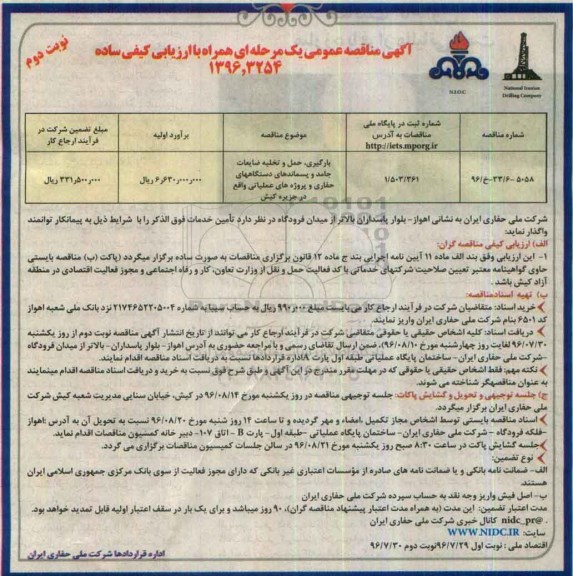 نوبت دوم
آگهی مناقصه عمومی یک مرحله ای همراه با ارزیابی کیفی ساده
۱۳۹۶,۳۲۵۴
NIDC
National Iranian
Drilling Company
شماره مناقصه
شماره ثبت در پایگاه ملی مناقصات به آدرس http://iets.mporg.ir
موضوع مناقصه
برآورد اولیه
مبلغ تضمین شرکت در فرآیند ارجاع کار
۵۰۵۸-۳۳/۶-خ/۹۶
۱/۵۰۳/۳۶۱
بارگیری، حمل و تخلیه ضایعات جامد و پسماندهای دستگاههای حفاری و پروژه های عملیاتی واقع در جزیره کیش
۶ر۶۳۰ر۰۰۰ر۰۰۰ ریال
۳۳۱ر۵۰۰ر۰۰۰ ریال
شرکت ملی حفاری ایران به نشانی اهواز- بلوار پاسداران بالاتر از میدان فرودگاه در نظر دارد تأمین خدمات فوق الذکر را با شرایط ذیل به پیمانکار توانمند
واگذار نماید:
الف) ارزیابی کیفی مناقصه گران:
۱- این ارزیابی وفق بند الف ماده ۱۱ آیین نامه اجرایی بند ج ماده ۱۲ قانون برگزاری مناقصات به صورت ساده برگزار میگردد (پاکت (ب) مناقصه بایستی
حاوی گواهینامه معتبر تعیین صلاحیت شرکتهای خدماتی با کد فعالیت حمل و نقل از وزارت تعاون، کار و رفاه اجتماعی و مجوز فعالیت اقتصادی در منطقه
آزاد کیش باشد .
ب) تهیه اسناد مناقصه:
خرید اسناد: متقاضیان شرکت در فرآیند ارجاع کار می بایست مبلغ ۹۹۰ر۰۰۰ ریال به حساب سیبا به شماره ۲۱۷۴۶۵۲۲۰۵۰۰۴ نزد بانک ملی شعبه اهواز
کد ۶۵۰۱ بنام شرکت ملی حفاری ایران واریز نمایند.
دریافت اسناد: کلیه اشخاص حقیقی یا حقوقی متقاضی شرکت در فرآیند ارجاع کار می توانند از تاریخ انتشار آگهی مناقصه نوبت دوم از روز یکشنبه
۹۶/۰۷/۳۰ لغایت روز چهارشنبه مورخ ۹۶/۰۸/۱۰، ضمن ارسال تقاضای رسمی و با مراجعه حضوری به آدرس اهواز- بلوار پاسداران- بالاتر از میدان فرودگاه
-شرکت ملی حفاری ایران- ساختمان پایگاه عملیاتی طبقه اول پارت A اداره قراردادها نسبت به دریافت اسناد مناقصه اقدام نمایند.
نکته مهم: فقط اشخاص حقیقی یا حقوقی که در مهلت مقرر مندرج در این آگهی و طبق شرح فوق نسبت به خرید و دریافت اسناد مناقصه اقدام مینمایند
به عنوان مناقصهگر شناخته می شوند.
ج) جلسه توجیهی و تحویل و گشایش پاکات: جلسه توجیهی مناقصه در روز یکشنبه مورخ ۹۶/۰۸/۱۴ در کیش، خیابان سنایی مدیریت شعبه کیش شرکت
ملی حفاری ایران برگزار میگردد.
اسناد مناقصه بایستی توسط اشخاص مجاز تکمیل ،امضاء و مهر گردیده و تا ساعت ۱۴ روز شنبه مورخ ۹۶/۰۸/۲۰ نسبت به تحویل آن به آدرس :اهواز
-فلکه فرودگاه - شرکت ملی حفاری ایران- ساختمان پایگاه عملیاتی -طبقه اول- پارت B - اتاق ۱۰۷- دبیر خانه کمسیون مناقصات اقدام نماید.
جلسه گشایش پاکت در ساعت ۸:۳۰ صبح روز یکشنبه مورخ ۹۶/۰۸/۲۱ در سالن جلسات کمیسیون مناقصات برگزاری می گردد.
نوع تضمین:
الف- ضمانت نامه بانکی و یا ضمانت نامه های صادره از مؤسسات اعتباری غیر بانکی که دارای مجوز فعالیت از سوی بانک مرکزی جمهوری اسلامی ایران
هستند.
ب- اصل فیش واریز وجه نقد به حساب سپرده شرکت ملی حفاری ایران
مدت اعتبار تضمین: این مدت (به همراه مدت اعتبار پیشنهاد مناقصه گران)، ۹۰ روز میباشد و برای یک بار در سقف اعتبار اولیه قابل تمدید خواهد بود.
@nidc_pr کانال خبری شرکت ملی حفاری ایران .
سایت: WWW.NIDC.IR
اقتصاد ملی : نوبت اول ۹۶/۷/۲۹ نوبت دوم ۹۶/۷/۳۰
اداره قراردادها شرکت ملی حفاری ایران